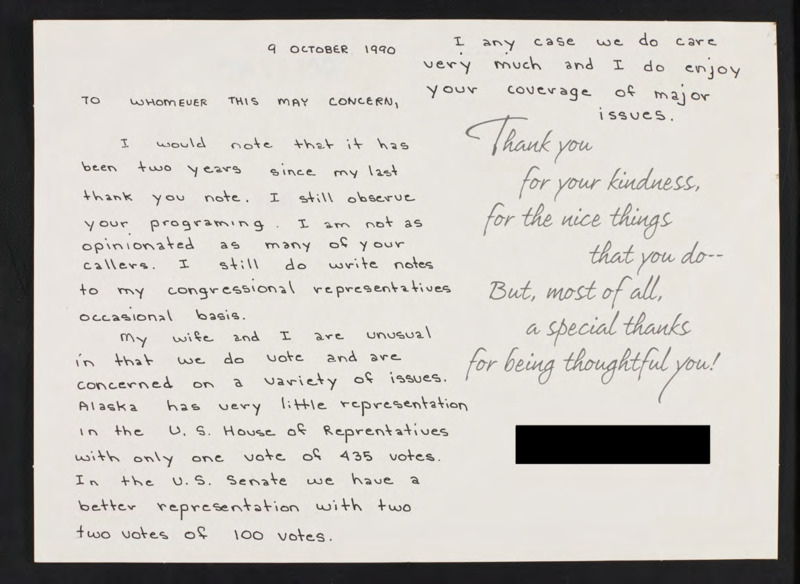 9 OCTOBER 1990
TO WHOMEVER THIS MAY CONCERN,
I would note that it has
been two years since my last
thank you note. I still observe
your programing. I am not as
opinionated as many of your
callers. I still do write notes
to my congressional representatives
occasional basis.
My wife and I are unusual
in that we do vote and are
concerned on a variety of issues.
Alaska has very little representation
in the U.S. House of Reprentatives
with only one vote of 435 votes.
In the U.S. Senate we have a
better representation with two
two votes of 100 votes.
I any case we do care
very much and I do enjoy
your coverage of major
issues.
Thank you
for your kindness,
for the nice things
that you do--
But, most of all,
a special thanks
for being thoughtful you!